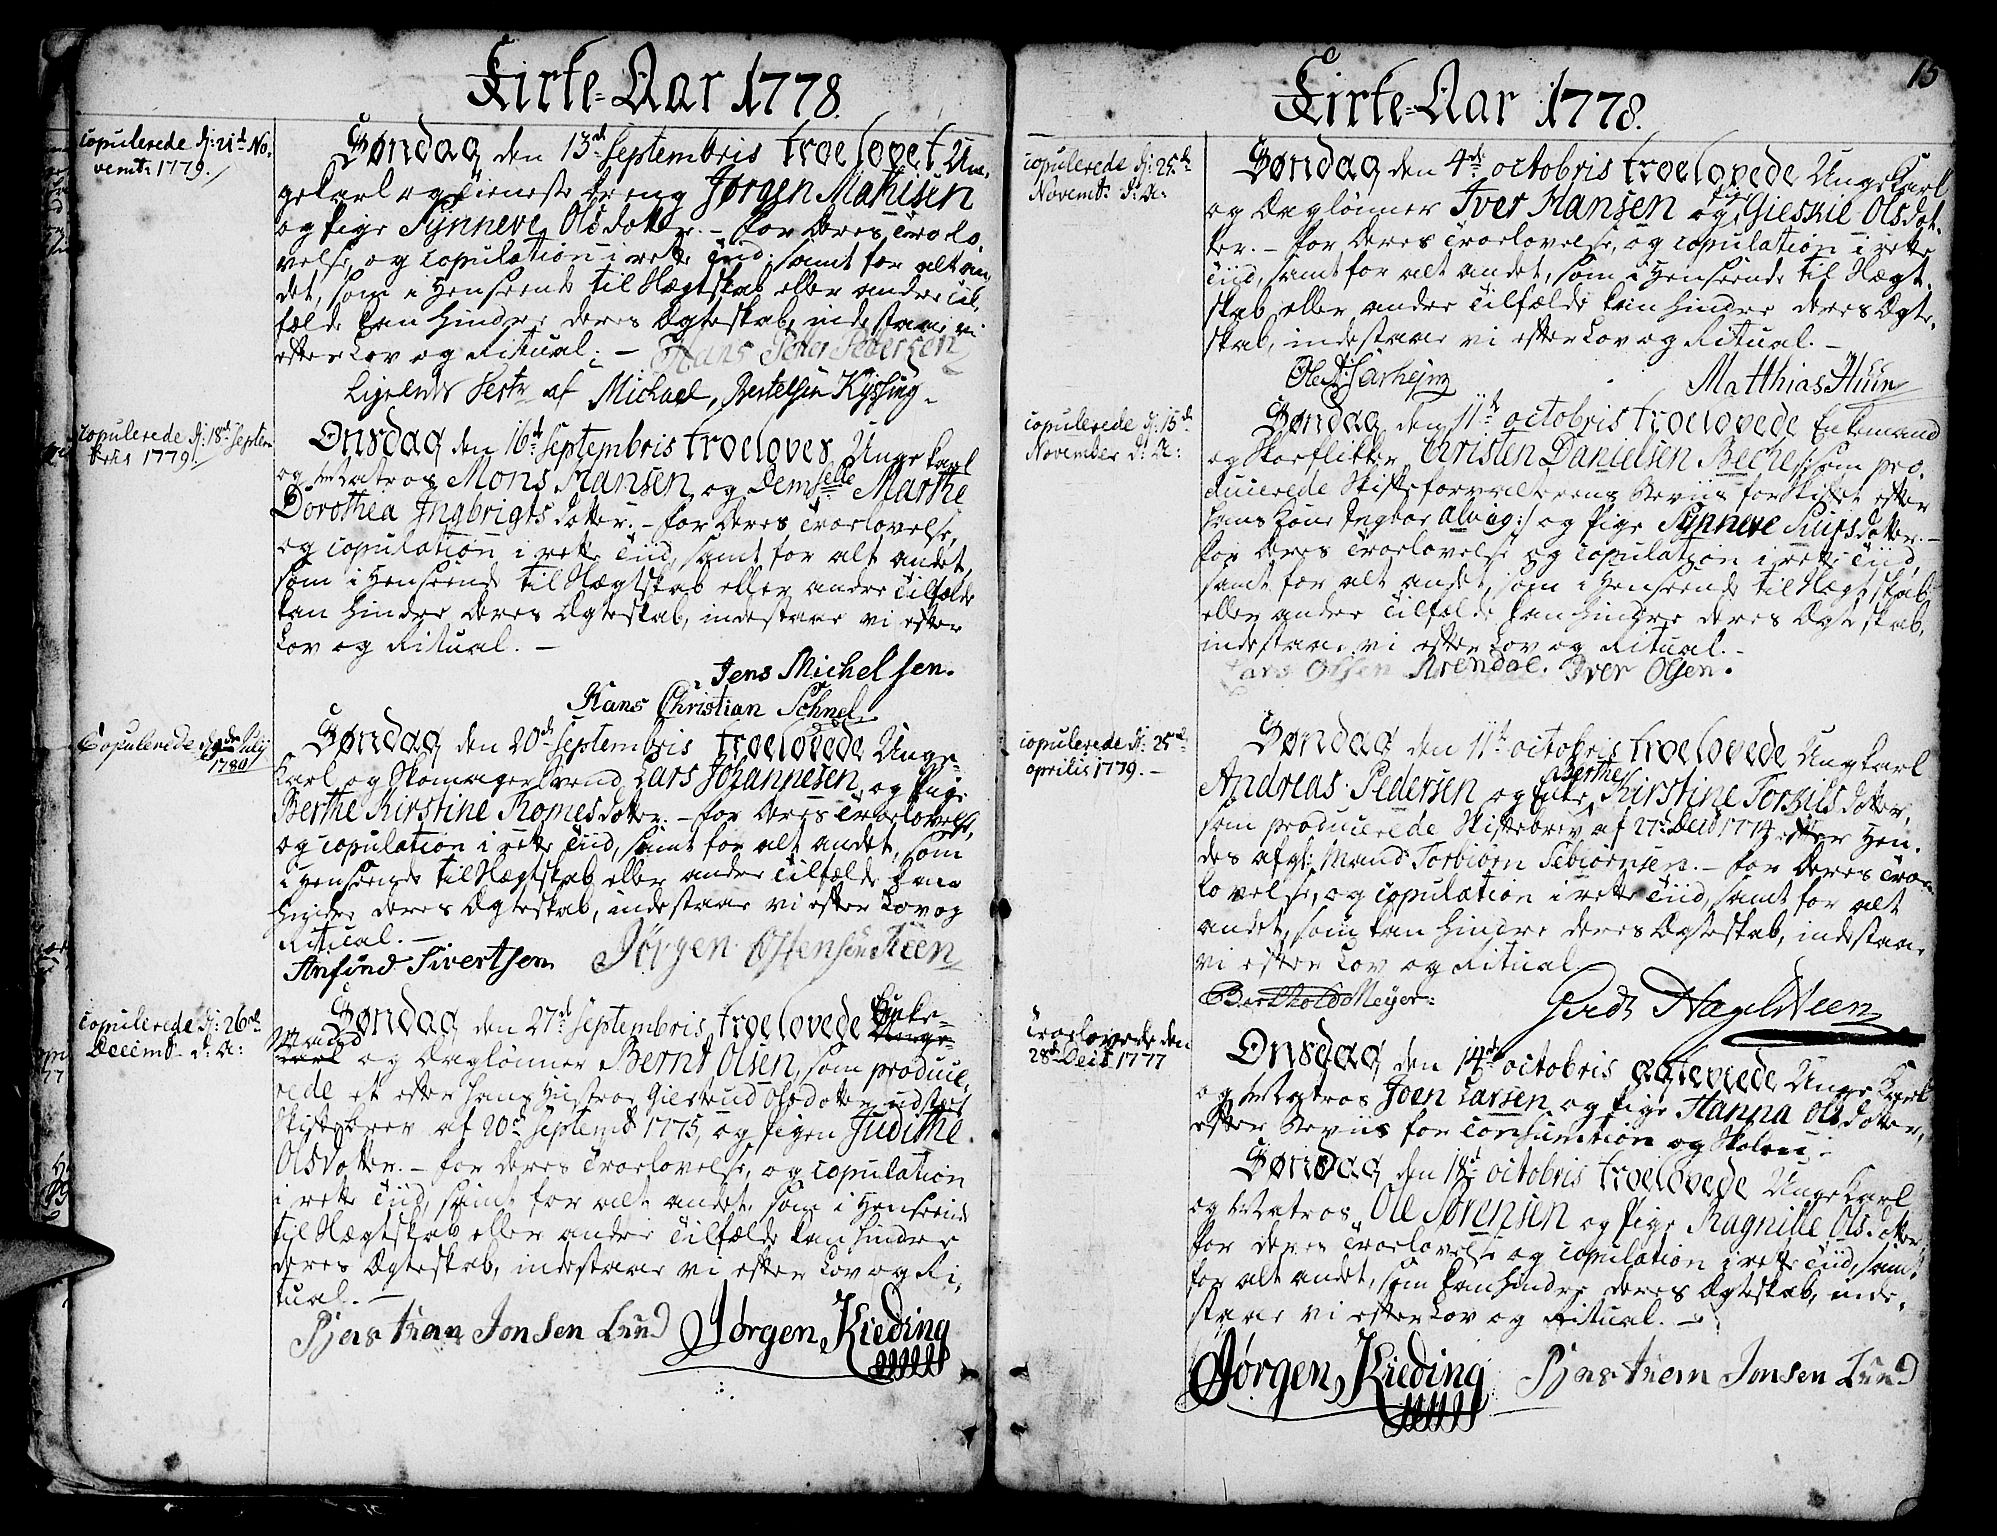 Kirke-Aar 1778.
copulerede d: 21d No-
vemb: 1779.
Søndag den 13d Septembris troelovet Un-
gekarl og tieneste dreng Jørgen Mathisen
og Pige Synneve Olsdotter. - for deres Troelo-
velse, og copulation i rette Tiid, samt for alt an-
det, som i Henseende til Slægtskab eller andre Til-
fælde kan hindre deres Ægteskab, indestaae vi
efter Lov og Ritual. - Hans Peter Pedersen
Ligeledes Test: af Michael, Bertelsen Kyssing.
copulerede d: 18d Septem-
bris 1779.
Onsdag den 16d Septembris troeloves Unge karl
og Matros Mons Hansen og Demselle Marthe
Dorothea Ingbrigtsdotter. - for deres Troelovelse,
og copulation i rette Tiid, samt for alt andet,
som i Henseende til Slægtskab eller andre Tilfælde
kan hindre deres Ægteskab, indestaae vi efter
Lov og Ritual. -
Jens Michelsen.
Hans Christian Schnel
Copulerede d: July
1780
Søndag den 20d Septembris troelovede Unge-
Karl og Skomager Svend Lars Johannesen, og Pige
Berthe Kirstine Romesdotter. - for deres Troelovelse,
og copulation i rette Tiid, samt for alt andet, som
i Henseende til Slægtskab eller andre Tilfælde kan
hindre deres Ægteskab, indestaae vi efter Lov og
Ritual. -
Anfind Sivertsen Jørgen Ostensen Steen
copulerede d: 26de
Decemb. d: A:
Søndag den 27d Septembris troelovede Enke-
Mand og Daglønner Bernt Olsen, som produce-
rede et efter hans Hustroe Giertrud Olsdotter udstæd
Skiftebrev af 20d Septemb 1775, og Pigen Judithe
Olsdotter. - for deres Troelovelse, og copulation
i rette Tiid, samt for alt andet, som i Henseende
til Slægtskab eller andre Tilfælde kan hindre
deres Ægteskab, indestaae vi efter Lov og Ri-
tual. -
Jonsen Lund Jørgen Kieding
15
Kirke-Aar 1778.
copulerede d: 25de
Novemb: d: A:
Søndag den 4de octobris troelovede Unge Karl
og Daglønner Iver Hansen og Pige Gieskie Olsdot-
ter. - for deres Troelovelse, og copulation i rette
Tiid, samt for alt andet, som i Henseende til Slægt-
skab eller andre Tilfælde kan hindre deres Ægte-
skab, indestaae vi efter Lov og Ritual. -
Matthias Huun
copulerede d: 15de
November d: A:
Søndag den 11d octobris troelovede Enkemand
og Skoeflikker Christen Danielsen Beche /: som pro-
ducerede Skifteforvalterens Beviis for Skiftet efter
hans Kone Ingbor Alvig :/ og Pige Synneve Siursdotter. -
for deres Troelovelse og copulation i rette Tiid,
samt for alt andet, som i Henseende til Slægtskab
eller andre Tilfælde kan hindre deres Ægteskab,
indestaae vi efter Lov og Ritual. -
Lars Olsen Arendal. Iver Olsen.
copulerede d: 25de
aprilis 1779. -
Søndag den 11d octobris troelovede Ungkarl
Andreas Pedersen og Enke Berthe Kirstine Torkilsdotter,
som producerede Skiftebrev af 27d Decb 1774 efter Hen-
des afg: Mand Torbiørn Tebiørnsen. - for deres Troe-
lovelse, og copulation i rette Tiid, samt for alt
andet, som kan hindre deres Ægteskab, indestaae
vi efter Lov og Ritual
Bertholdt Meyer Gerdt Hagelsteen
Troelovede den
28d Decb 1777
Onsdag den 14de octobris ægteviede Unge Karl
og Matros Joen Larsen og Pige Hanna Olsdotter,
efter Beviis for Consumtion og Skolen.
Søndag den 18d octobris troelovede Unge Karl
og Matros Ole Sørensen og Pige Ragnille Olsdotter,
for deres Troelovelse og copulation i rette Tiid, samt
for alt andet, som kan hindre deres Ægteskab, inde-
staae vi efter Lov og Ritual. -
Jørgen Kieding Jonsen Lund